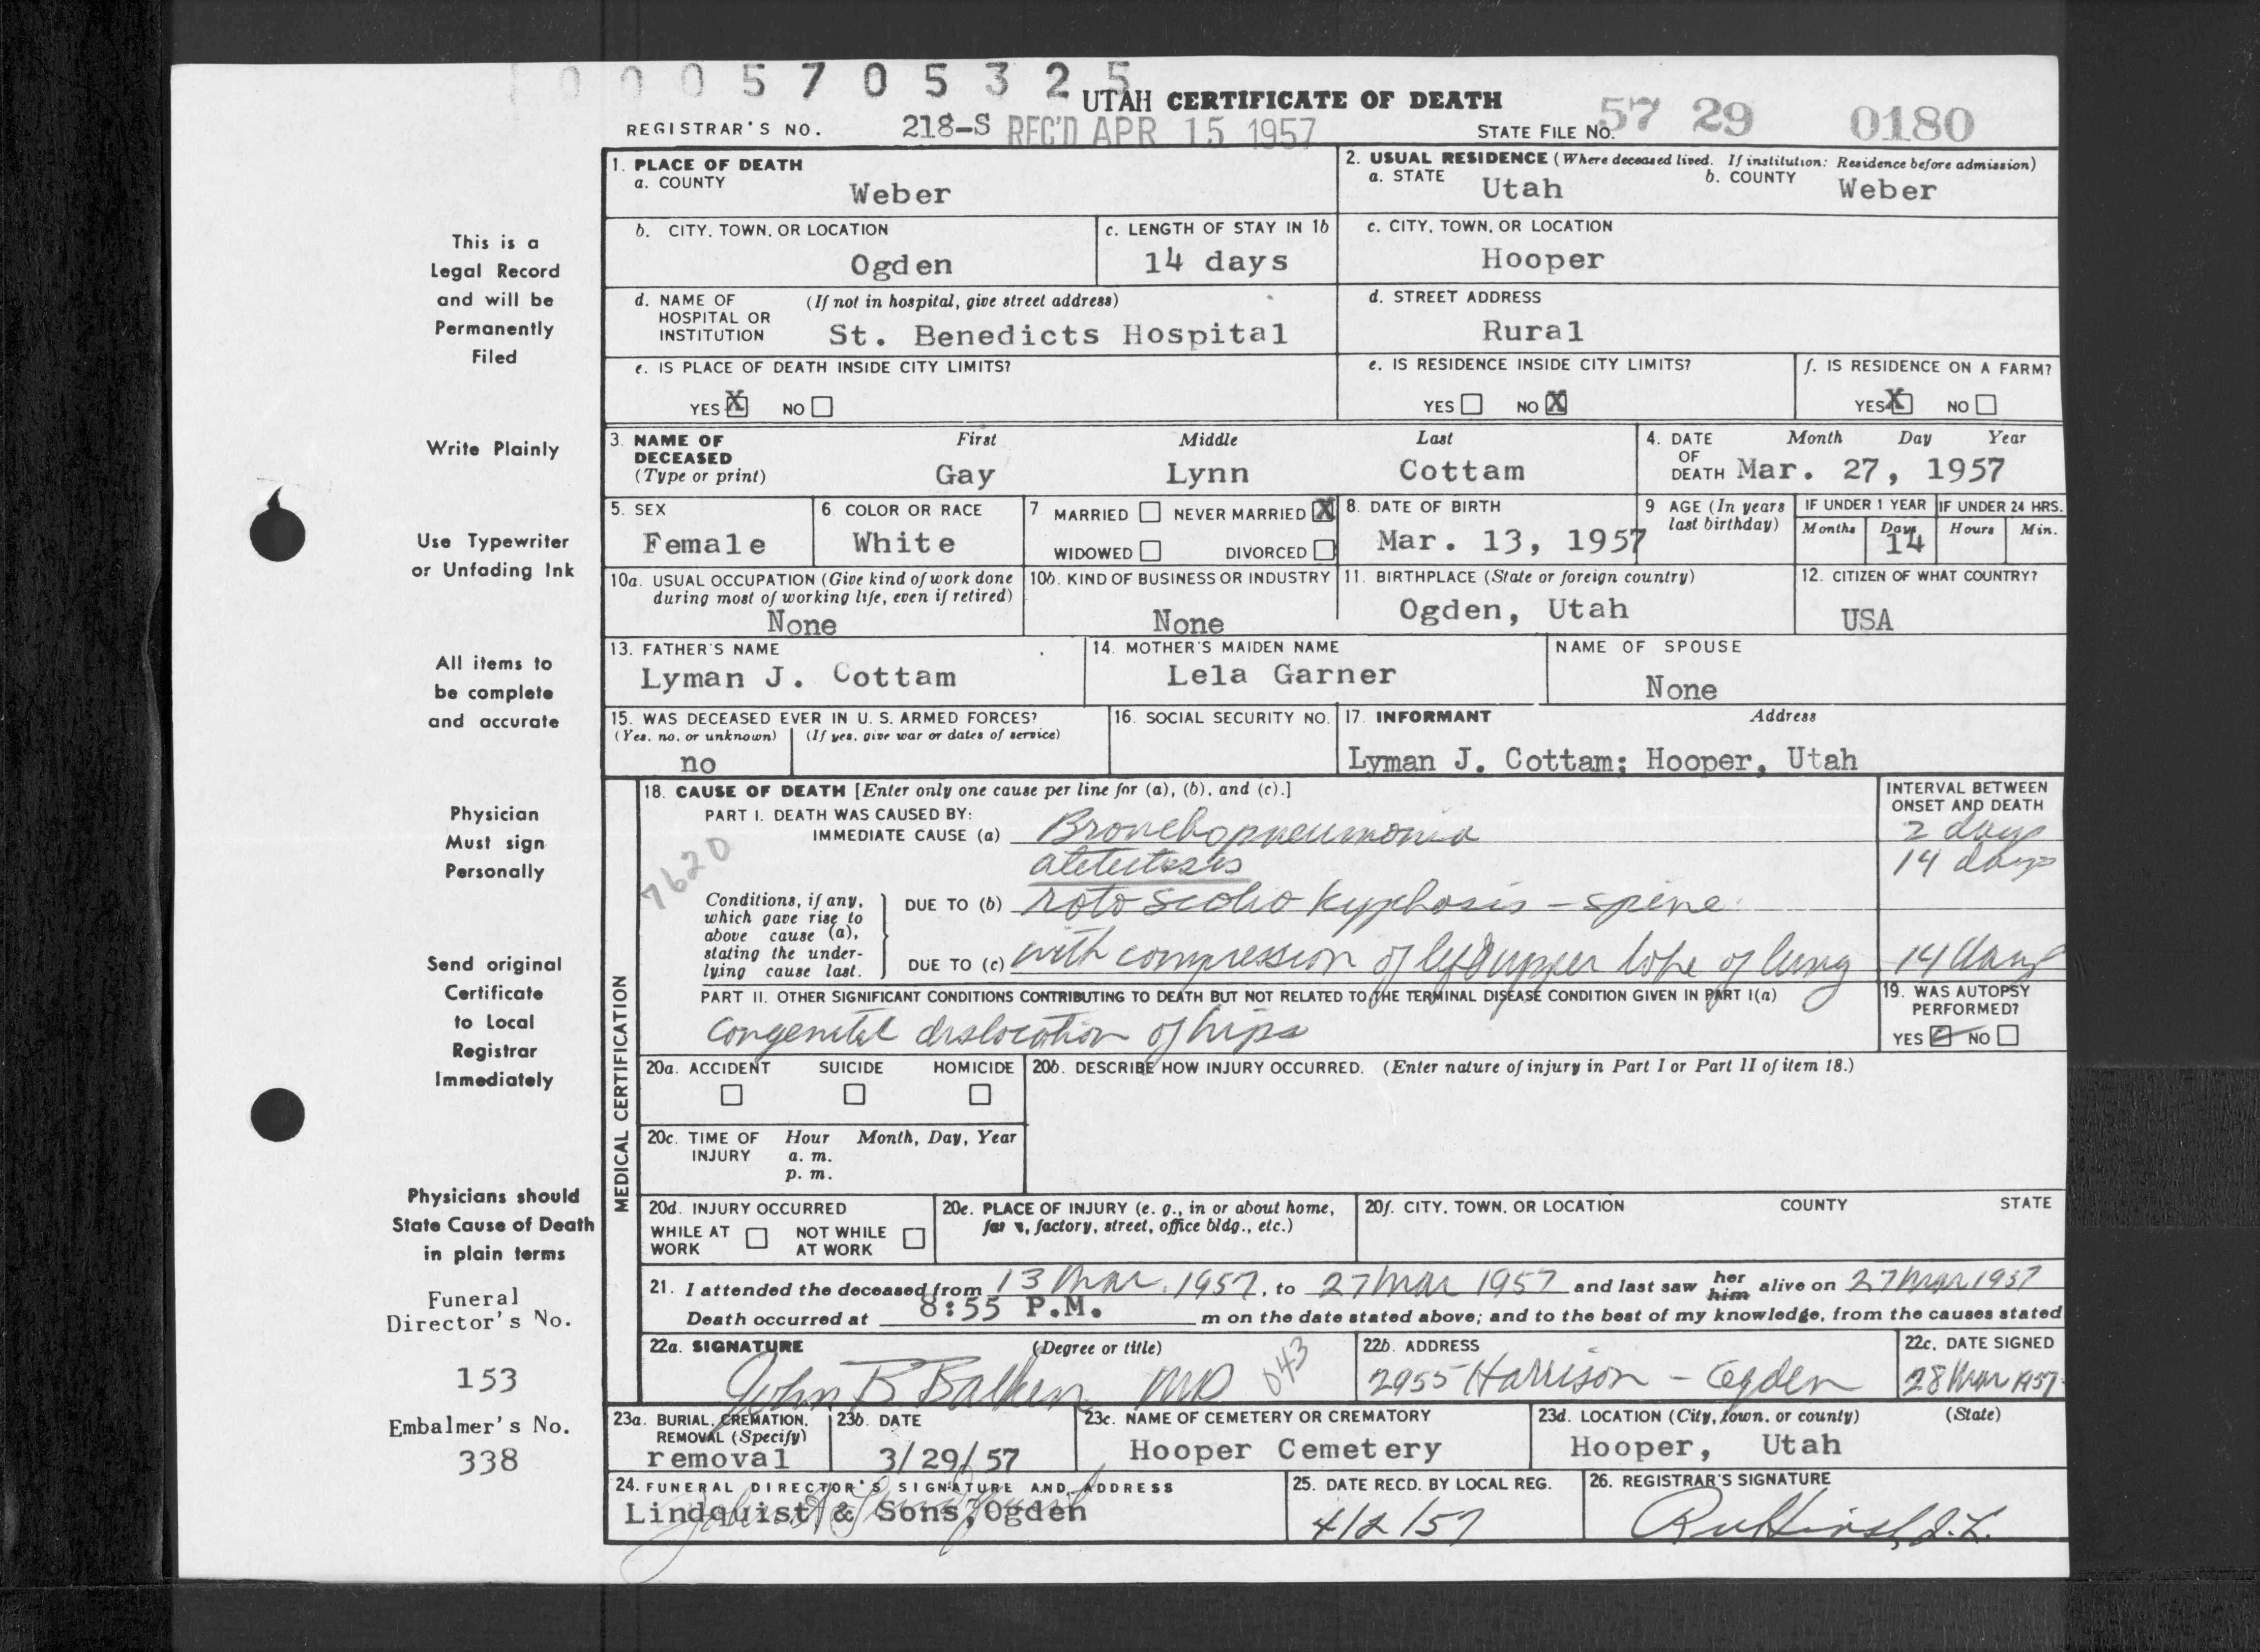 0 0 0 5 7 0 5 3 2 5
UTAH CERTIFICATE OF DEATH
REGISTRAR'S NO. 218-S REC'D APR 15 1957 STATE FILE NO. 57 29 0180
1. PLACE OF DEATH
a. COUNTY Weber
2. USUAL RESIDENCE (Where deceased lived. If institution: Residence before admission)
a. STATE Utah b. COUNTY Weber
b. CITY, TOWN, OR LOCATION Ogden
c. LENGTH OF STAY IN 1b 14 days
c. CITY, TOWN, OR LOCATION Hooper
d. NAME OF HOSPITAL OR INSTITUTION (If not in hospital, give street address) St. Benedicts Hospital
d. STREET ADDRESS Rural
e. IS PLACE OF DEATH INSIDE CITY LIMITS? YES X NO
e. IS RESIDENCE INSIDE CITY LIMITS? YES NO X
f. IS RESIDENCE ON A FARM? YES X NO
3. NAME OF DECEASED (Type or print) First Gay Middle Lynn Last Cottam
4. DATE OF DEATH Month Day Year Mar. 27, 1957
5. SEX Female
6. COLOR OR RACE White
7 MARRIED NEVER MARRIED X
WIDOWED DIVORCED
8. DATE OF BIRTH Mar. 13, 1957
9 AGE (In years last birthday)
IF UNDER 1 YEAR Months Days 14
IF UNDER 24 HRS. Hours Min.
10a. USUAL OCCUPATION (Give kind of work done during most of working life, even if retired) None
10b. KIND OF BUSINESS OR INDUSTRY None
11. BIRTHPLACE (State or foreign country) Ogden, Utah
12. CITIZEN OF WHAT COUNTRY? USA
13. FATHER'S NAME Lyman J. Cottam
14. MOTHER'S MAIDEN NAME Lela Garner
NAME OF SPOUSE None
15. WAS DECEASED EVER IN U. S. ARMED FORCES?
(Yes, no, or unknown) (If yes, give war or dates of service)
no
16. SOCIAL SECURITY NO.
17. INFORMANT Address
Lyman J. Cottam; Hooper, Utah
MEDICAL CERTIFICATION
18. CAUSE OF DEATH [Enter only one cause per line for (a), (b), and (c).]
INTERVAL BETWEEN ONSET AND DEATH
PART I. DEATH WAS CAUSED BY:
IMMEDIATE CAUSE (a) Bronchopneumonia 2 days
7620
14 days
Conditions, if any, which gave rise to above cause (a), stating the underlying cause last.
DUE TO (b) roto scolio kyphosis - spine
DUE TO (c) with compression of left upper lobe of lung 14 days
PART II. OTHER SIGNIFICANT CONDITIONS CONTRIBUTING TO DEATH BUT NOT RELATED TO THE TERMINAL DISEASE CONDITION GIVEN IN PART I(a)
Congenital dislocation of hips
19. WAS AUTOPSY PERFORMED? YES NO
20a. ACCIDENT SUICIDE HOMICIDE
20b. DESCRIBE HOW INJURY OCCURRED. (Enter nature of injury in Part I or Part II of item 18.)
20c. TIME OF INJURY Hour Month, Day, Year
a. m.
p. m.
20d. INJURY OCCURRED
WHILE AT WORK NOT WHILE AT WORK
20e. PLACE OF INJURY (e. g., in or about home, factory, street, office bldg., etc.)
20f. CITY, TOWN, OR LOCATION COUNTY STATE
21. I attended the deceased from 13 Mar. 1957, to 27 Mar 1957 and last saw her him alive on 27 Mar 1957
Death occurred at 8:55 P.M. m on the date stated above; and to the best of my knowledge, from the causes stated
22a. SIGNATURE (Degree or title)
John B MD 043
22b. ADDRESS 2955 Harrison - Ogden
22c. DATE SIGNED 28 Mar 1957
23a. BURIAL, CREMATION, REMOVAL (Specify) removal
23b. DATE 3/29/57
23c. NAME OF CEMETERY OR CREMATORY Hooper Cemetery
23d. LOCATION (City, town, or county) (State) Hooper, Utah
24. FUNERAL DIRECTOR'S SIGNATURE AND ADDRESS
Lindquist & Sons, Ogden
25. DATE RECD. BY LOCAL REG. 4/2/57
26. REGISTRAR'S SIGNATURE
This is a
Legal Record
and will be
Permanently
Filed
Write Plainly
Use Typewriter
or Unfading Ink
All items to
be complete
and accurate
Physician
Must sign
Personally
Send original
Certificate
to Local
Registrar
Immediately
Physicians should
State Cause of Death
in plain terms
Funeral
Director's No.
153
Embalmer's No.
338